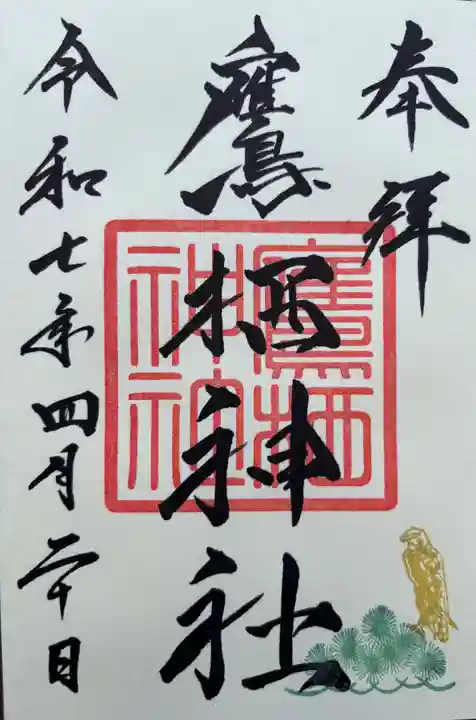 奉拜
鷹栖神社
鷹栖
神社
令和七年四月二十日